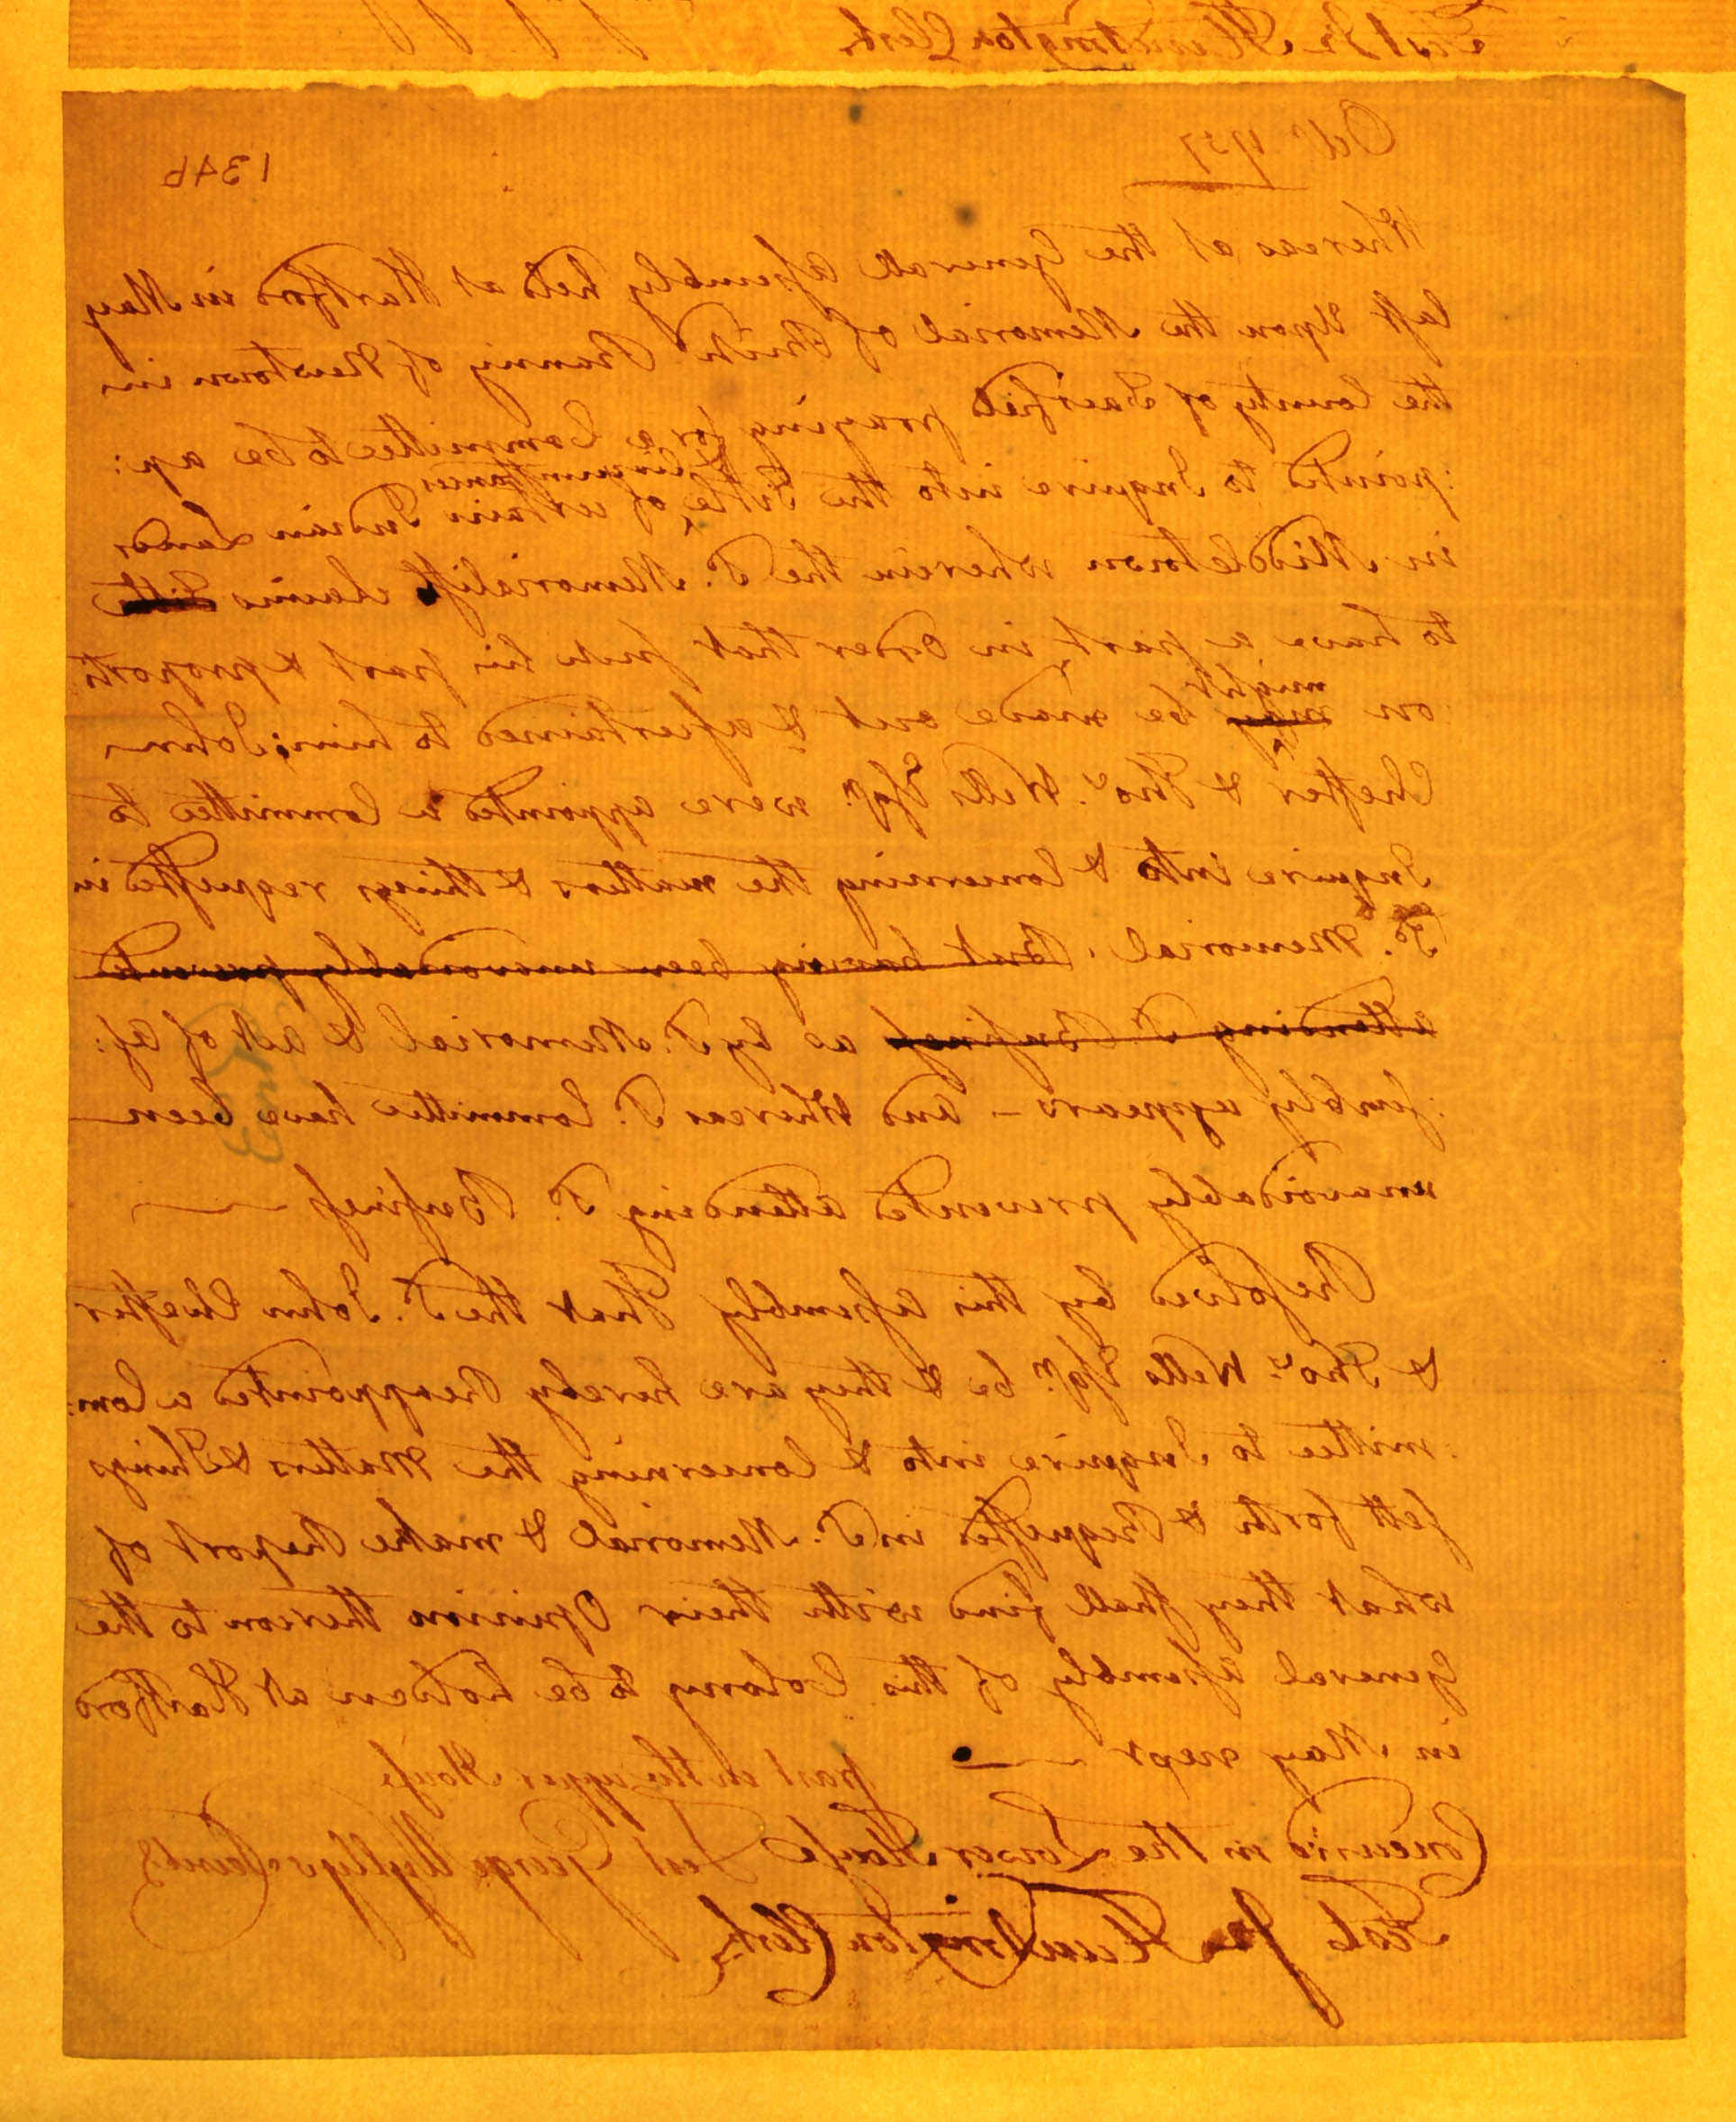 Test Jn Huntington Clerk
Octr 1757
134b
Whereas at the General Assembly held at Hartford in May
last Upon the Memorial of of Newtown in
the County of Fairfield praying for a Committee to be ap:
:pointed to Inquire into the Title & Circumstances of certain Indian Lands
in Middletown wherein the Sd. Memorialist claims Title
to have a part, in Order that such his part & proporti
on may might be made out & assertained to him; John
Chester & Thos. Wells Esqr. were appointed a Committee to
Inquire into & Concerning the matters & things requested in
Sd. Memorial. But having been unavoidably prevented
attending Sd. Business as by Sd. Memorial & act of As:
:sembly appears – And Whereas Sd. Committee have been
unavoidably prevented attending Sd. Business
Resolved by this Assembly That the Sd. John Chester
& Thos. Wells Esqr. be & they are hereby Reappointed a Com:
:mittee to Inquire into & Concerning the Matters & Things
sett forth & Requested in Sd. Memorial & make Report of
what they shall find with their Opinion thereon to the
General Assembly of this Colony to be holden at Hartford
in May next
past in the upper House
Test George Wyllys Secrety
Concurrd in the Lower House
Test Jn Huntington Clerk